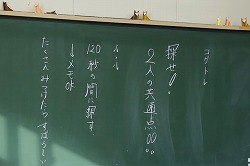 コグトレ
探せ!
2人の共通点00
ルール
120秒の間に探す
↓メモOK
たくさんみつけたらすばらしい